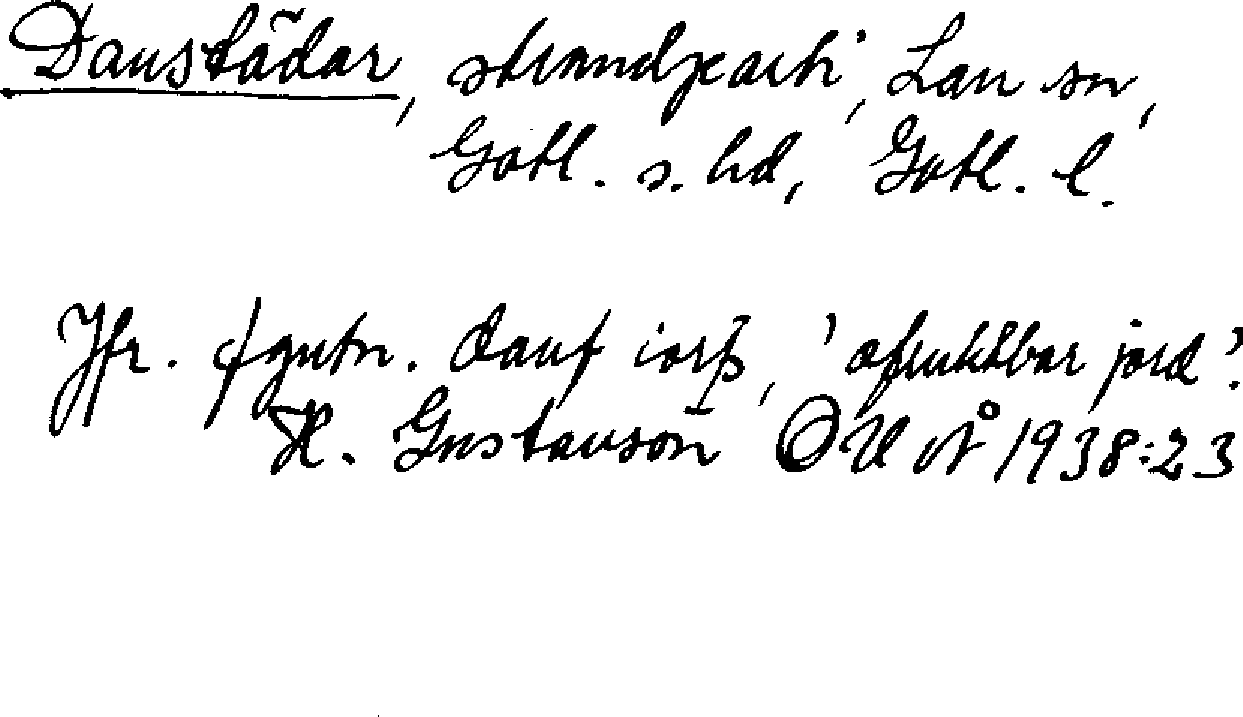 Daustädar, strandparti, Lau sn,
Gotl. s. hd, Gotl. l.
Jfr. fgutn. dauf iorþ, 'ofruktbar jord'.
H. Gustavson OUÅ 1938:23